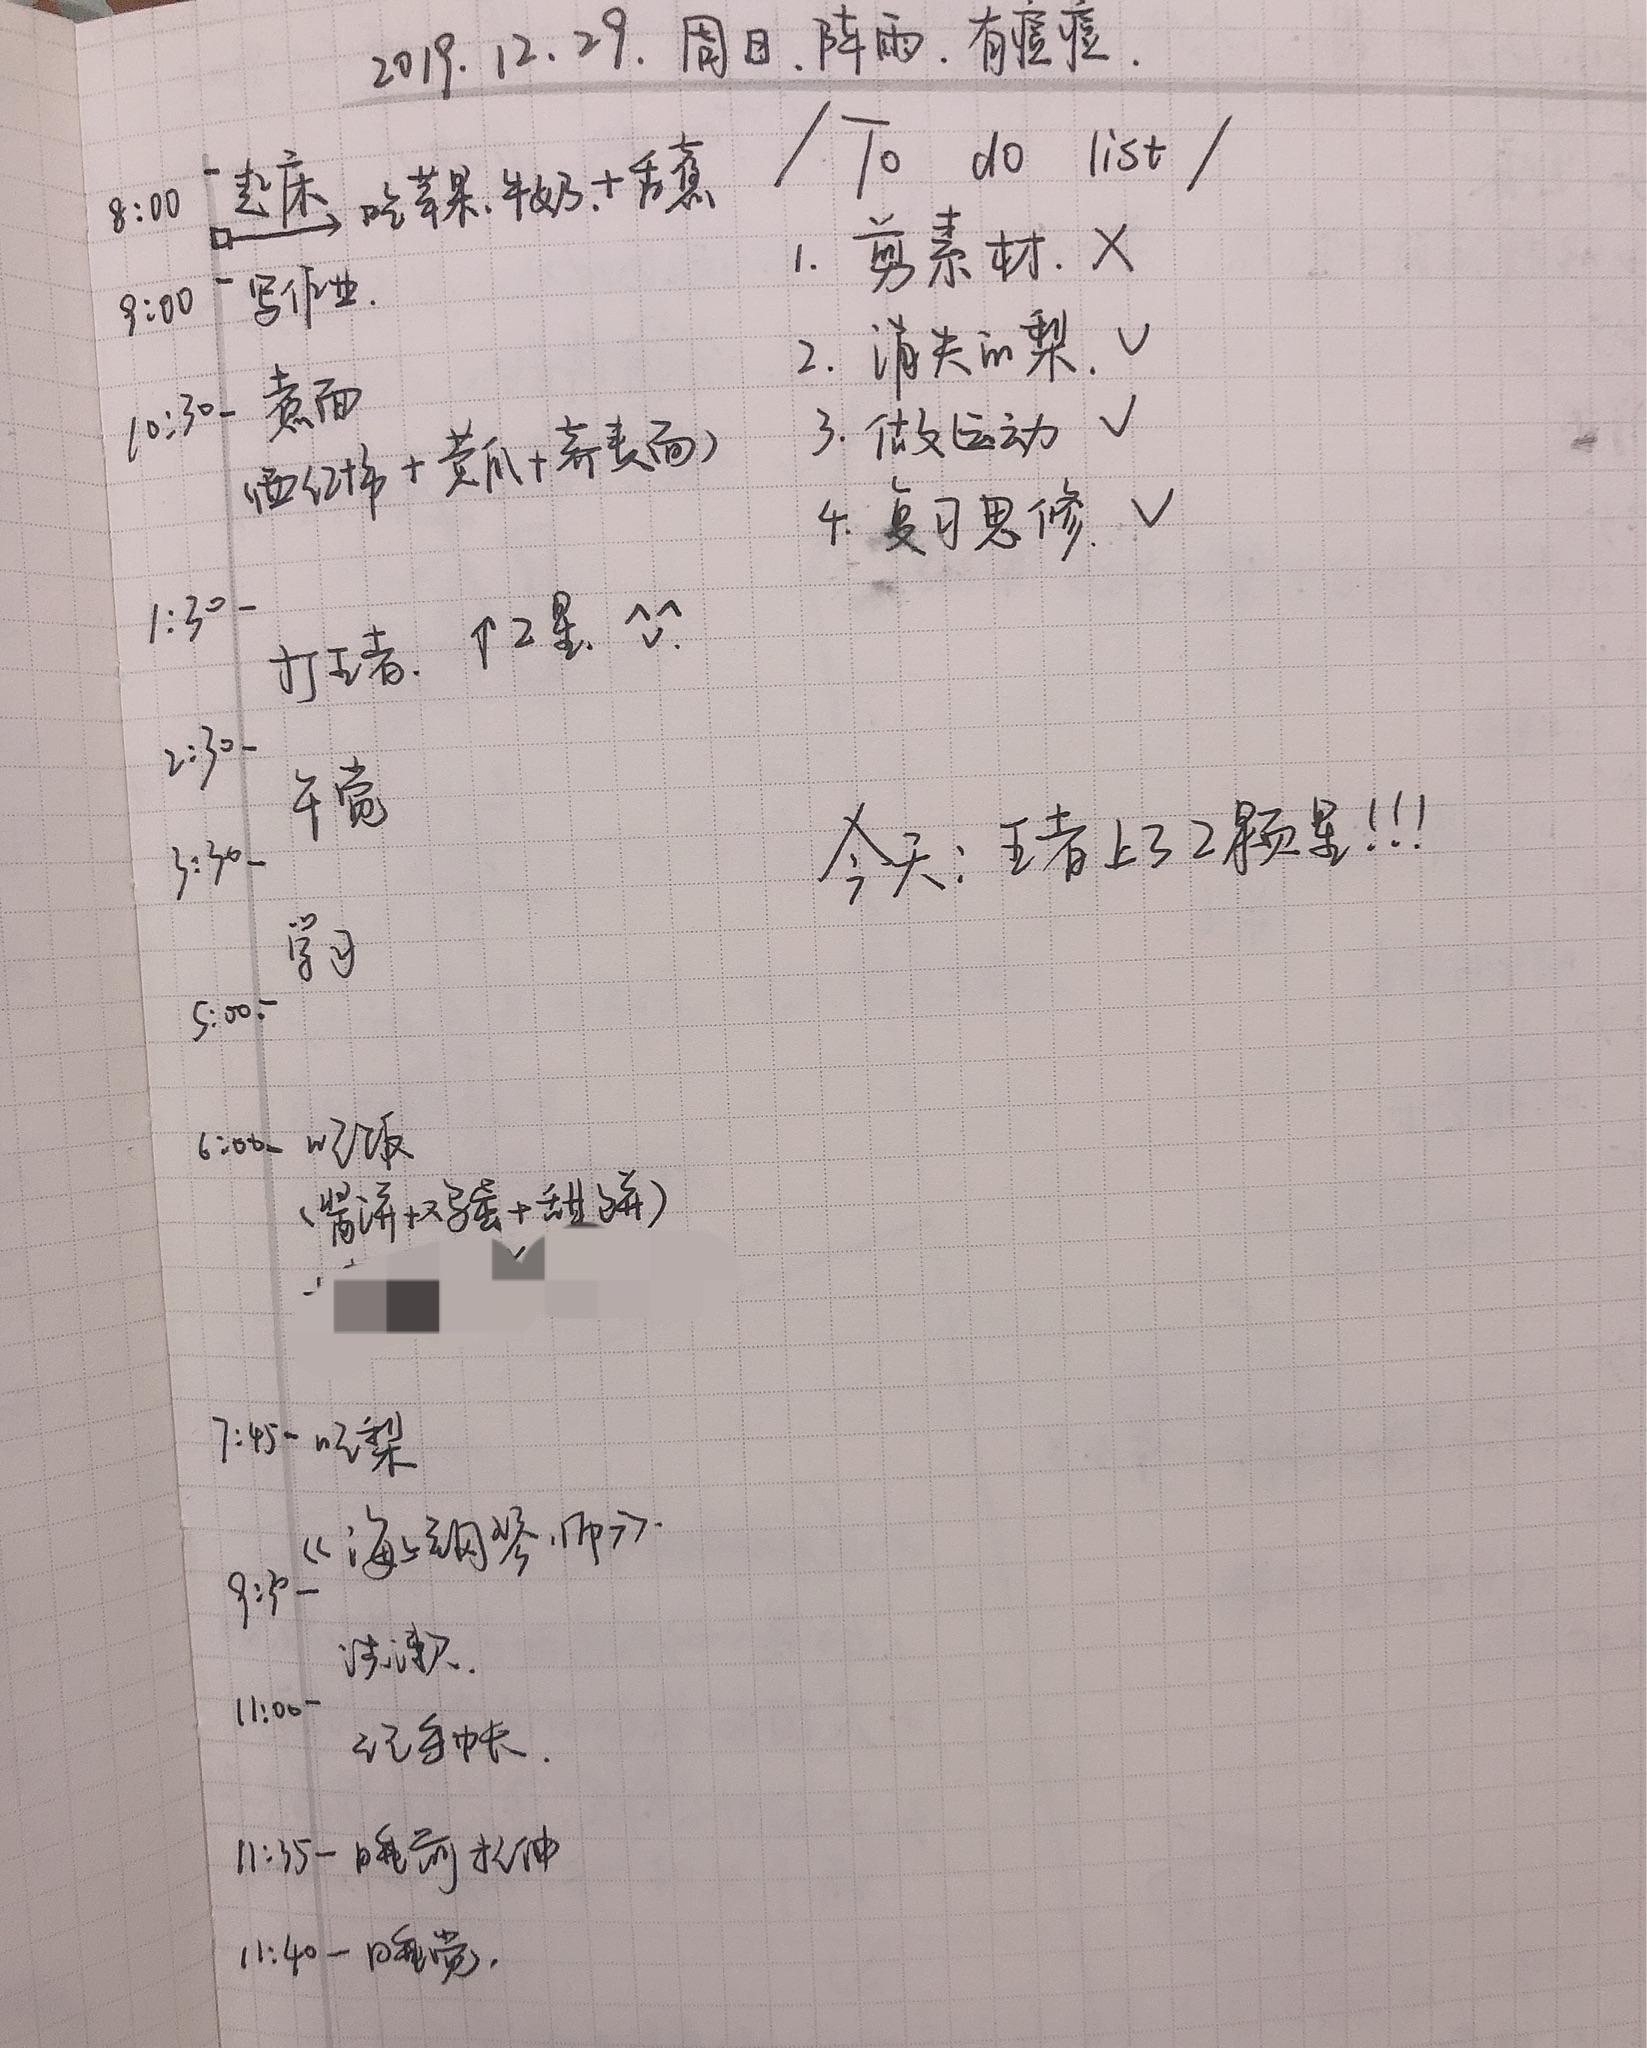 2019.12.29.周日.阵雨.有痘痘.
8:00 起床 吃苹果.牛奶.+香蕉
9:00 写作业.
10:30- 煮面
(西红柿+黄瓜+荞麦面)
1:30-
打王者. ↑2星 ^^.
2:30-
午觉
3:30-
学习
5:00-
6:00- 吃饭
(酱饼+鸡蛋+甜饼)
7:45- 吃梨
《海上钢琴师》.
9:50-
洗漱.
11:00-
记手帐.
11:35- 睡前拉伸
11:40- 睡觉.
/To do list/
1. 剪素材. X
2. 消失的梨. √
3. 做运动 √
4. 复习思修. √
今天:王者上了2颗星!!!